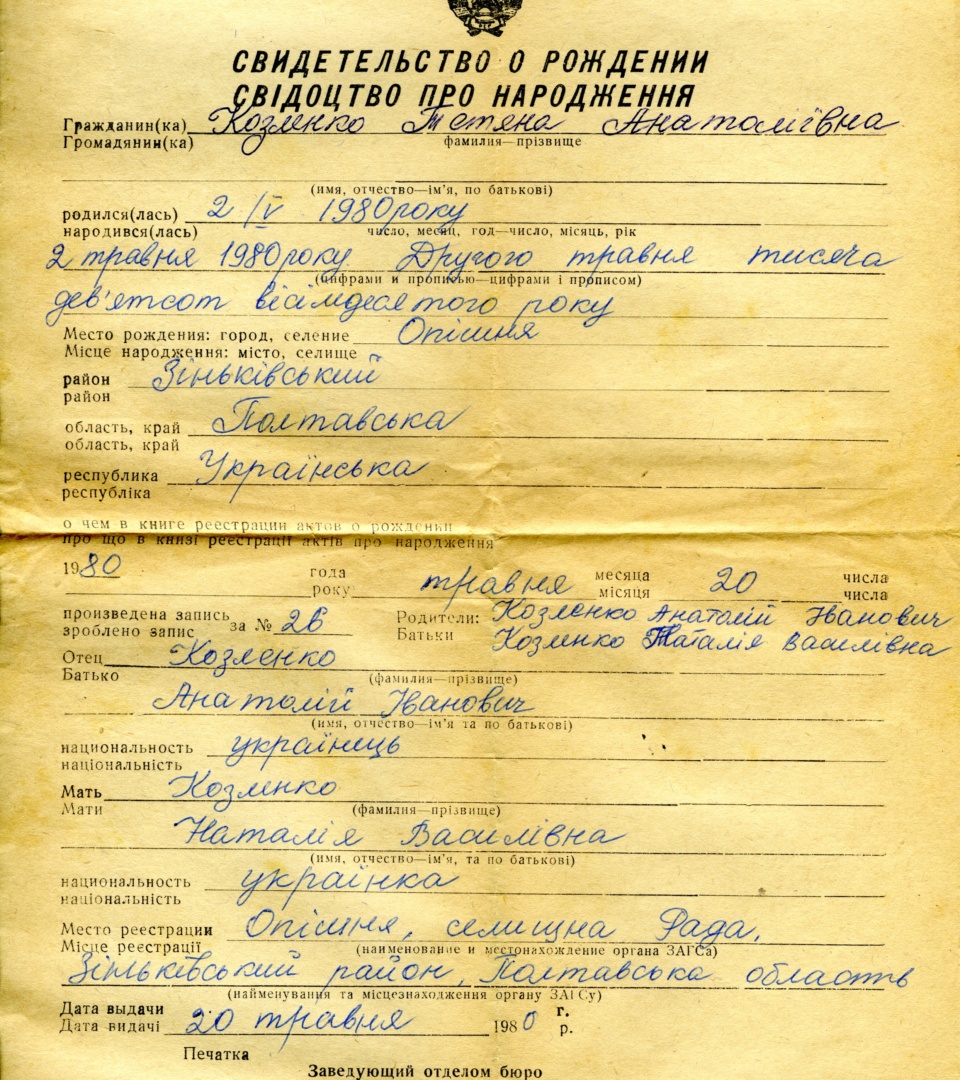 СВИДЕТЕЛЬСТВО О РОЖДЕНИИ
СВІДОЦТВО ПРО НАРОДЖЕННЯ
Гражданин(ка) Козленко Тетяна Анатоліївна
Громадянин(ка) фамилия—прізвище
(имя, отчество—ім'я, по батькові)
родился(лась) 2/V 1980 року
народився(лась) число, месяц, год—число, місяць, рік
2 травня 1980 року Другого травня тисяча
(цифрами и прописью—цифрами і прописом)
дев'ятсот вісімдесятого року
Место рождения: город, селение Опішня
Місце народження: місто, селище
район Зіньківський
район
область, край Полтавська
область, край
республика Українська
республіка
о чем в книге реестрации актов о рождении
про що в книзі реєстрації актів про народження
1980 года травня месяца 20 числа
року місяця числа
произведена запись за № 26 Родители: Козленко Анатолій Іванович
зроблено запис Батьки Козленко Наталія Василівна
Отец Козленко
Батько (фамилия—прізвище)
Анатолій Іванович
(имя, отчество—ім'я та по батькові)
национальность українець
національність
Мать Козленко
Мати (фамилия—прізвище)
Наталія Василівна
(имя, отчество—ім'я, та по батькові)
национальность українка
національність
Место реестрации Опішня, селищна Рада,
Місце реєстрації (наименование и местонахождение органа ЗАГСа)
Зіньківський район, Полтавська область
(найменування та місцезнаходження органу ЗАГСу)
Дата выдачи 20 травня 1980 г.
Дата видачі р.
Печатка
Заведующий отделом бюро